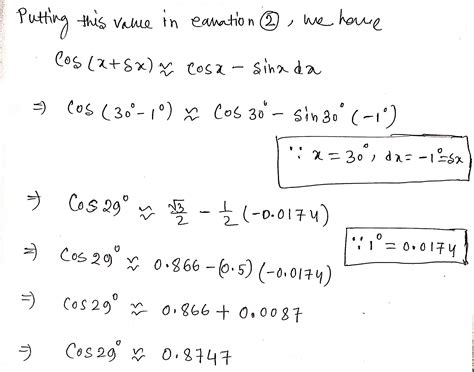 Putting this value in equation ②, we have
Cos (x+δx) ≈ Cosx - Sinx dx
⇒ Cos (30°-1°) ≈ Cos 30° - Sin 30° (-1°)
∵ x = 30°, dx = -1° = δx
⇒ Cos 29° ≈ √3/2 - 1/2 (-0.0174)
∵ 1° = 0.0174
⇒ Cos 29° ≈ 0.866 - (0.5) (-0.0174)
⇒ Cos 29° ≈ 0.866 + 0.0087
⇒ Cos 29° ≈ 0.8747